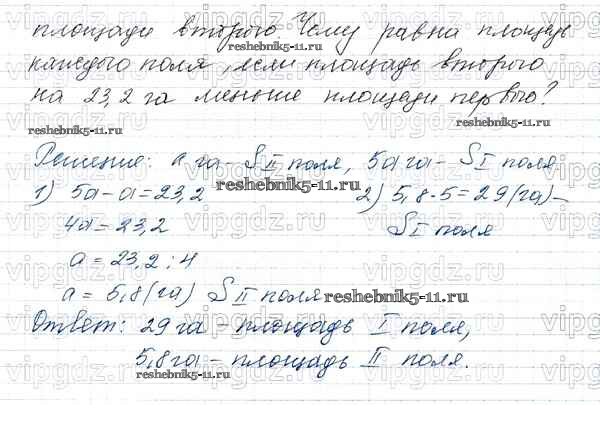 площади второго. Чему равна площадь
каждого поля, если площадь второго
на 23,2 га меньше площади первого?
Решение: а га – S II поля, 5а га – S I поля
1) 5а – а = 23,2
2) 5,8 · 5 = 29 (га) –
4а = 23,2
S I поля
а = 23,2 : 4
а = 5,8 (га) S II поля
Ответ: 29 га – площадь I поля,
5,8 га – площадь II поля.
reshebnik5-11.ru
reshebnik5-11.ru
reshebnik5-11.ru
reshebnik5-11.ru
reshebnik5-11.ru
vipgdz.ru